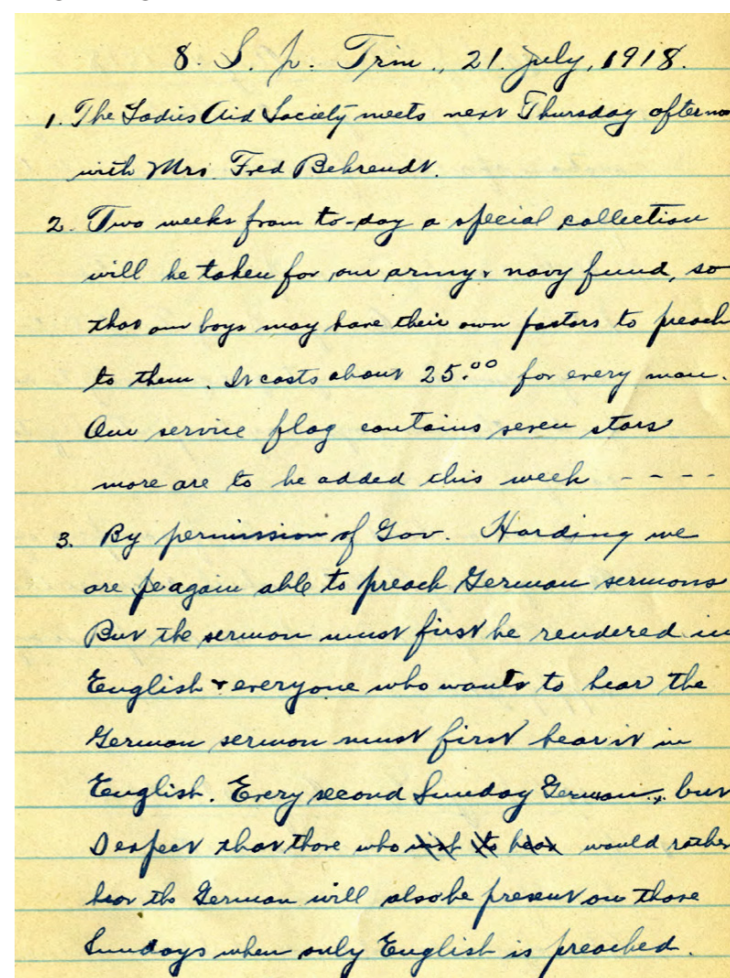 8. S. p. Trin., 21. July, 1918.
1. The Ladies Aid Society meets next Thursday afternoo
with Mrs. Fred Behrendt.
2. Two weeks from to-day a special collection
will be taken for our army & navy fund, so
that our boys may have their own pastors to preach
to them. It costs about 25.00 for every man.
Our service flag contains seven stars
more are to be added this week - - - -
3. By permission of Gov. Harding we
are again able to preach German sermons
But the sermon must first be rendered in
English & everyone who wants to hear the
German sermon must first hear it in
English. Every second Sunday German, but
I expect that those who wish to hear would rather
hear the German will also be present on those
Sundays when only English is preached.